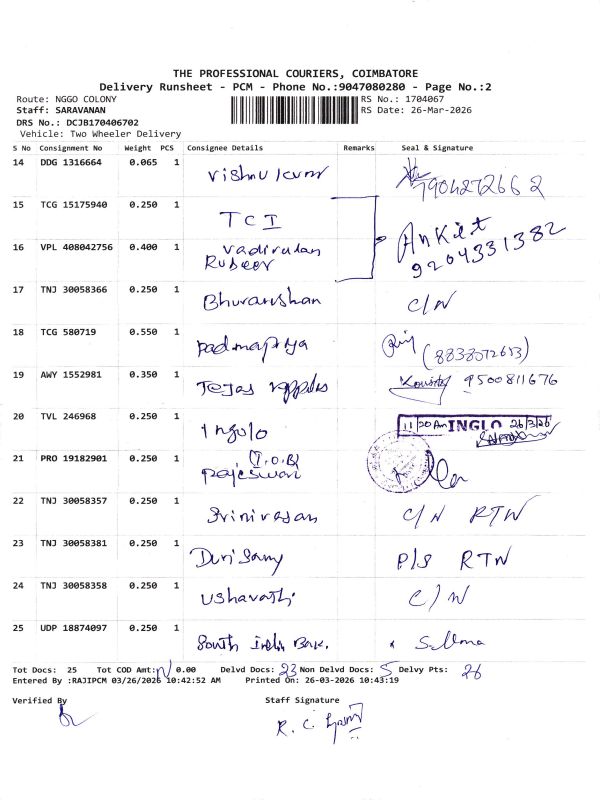 THE PROFESSIONAL COURIERS, COIMBATORE
Delivery Runsheet - PCM - Phone No.:9047080280 - Page No.:2
Route: NGGO COLONY RS No.: 1704067
Staff: SARAVANAN RS Date: 26-Mar-2026
DRS No.: DCJB170406702
Vehicle: Two Wheeler Delivery
S No Consignment No Weight PCS Consignee Details Remarks Seal & Signature
14 DDG 1316664 0.065 1 Vishnu kumr 7904272662
15 TCG 15175940 0.250 1 TCI Ankit
16 VPL 408042756 0.400 1 Vadivudan 9204331382
Rubeer
17 TNJ 30058366 0.250 1 Bhuvanishan C/N
18 TCG 580719 0.550 1 Padmapriya
19 AWY 1552981 0.350 1 Tejas 9500811676
20 TVL 246968 0.250 1 Inglo 11/20 Am INGLO 26/3/26
21 PRO 19182901 0.250 1 (I.O.B)
Rajeswari
22 TNJ 30058357 0.250 1 Srinivasan C/N RTN
23 TNJ 30058381 0.250 1 Durisamy P/S RTN
24 TNJ 30058358 0.250 1 Ushavathi C/N
25 UDP 18874097 0.250 1 South Indn Bak.
Tot Docs: 25 Tot COD Amt: 0.00 Delvd Docs: 23 Non Delvd Docs: 5 Delvy Pts: 26
Entered By :RAJIPCM 03/26/2026 10:42:52 AM Printed On: 26-03-2026 10:43:19
Verified By Staff Signature